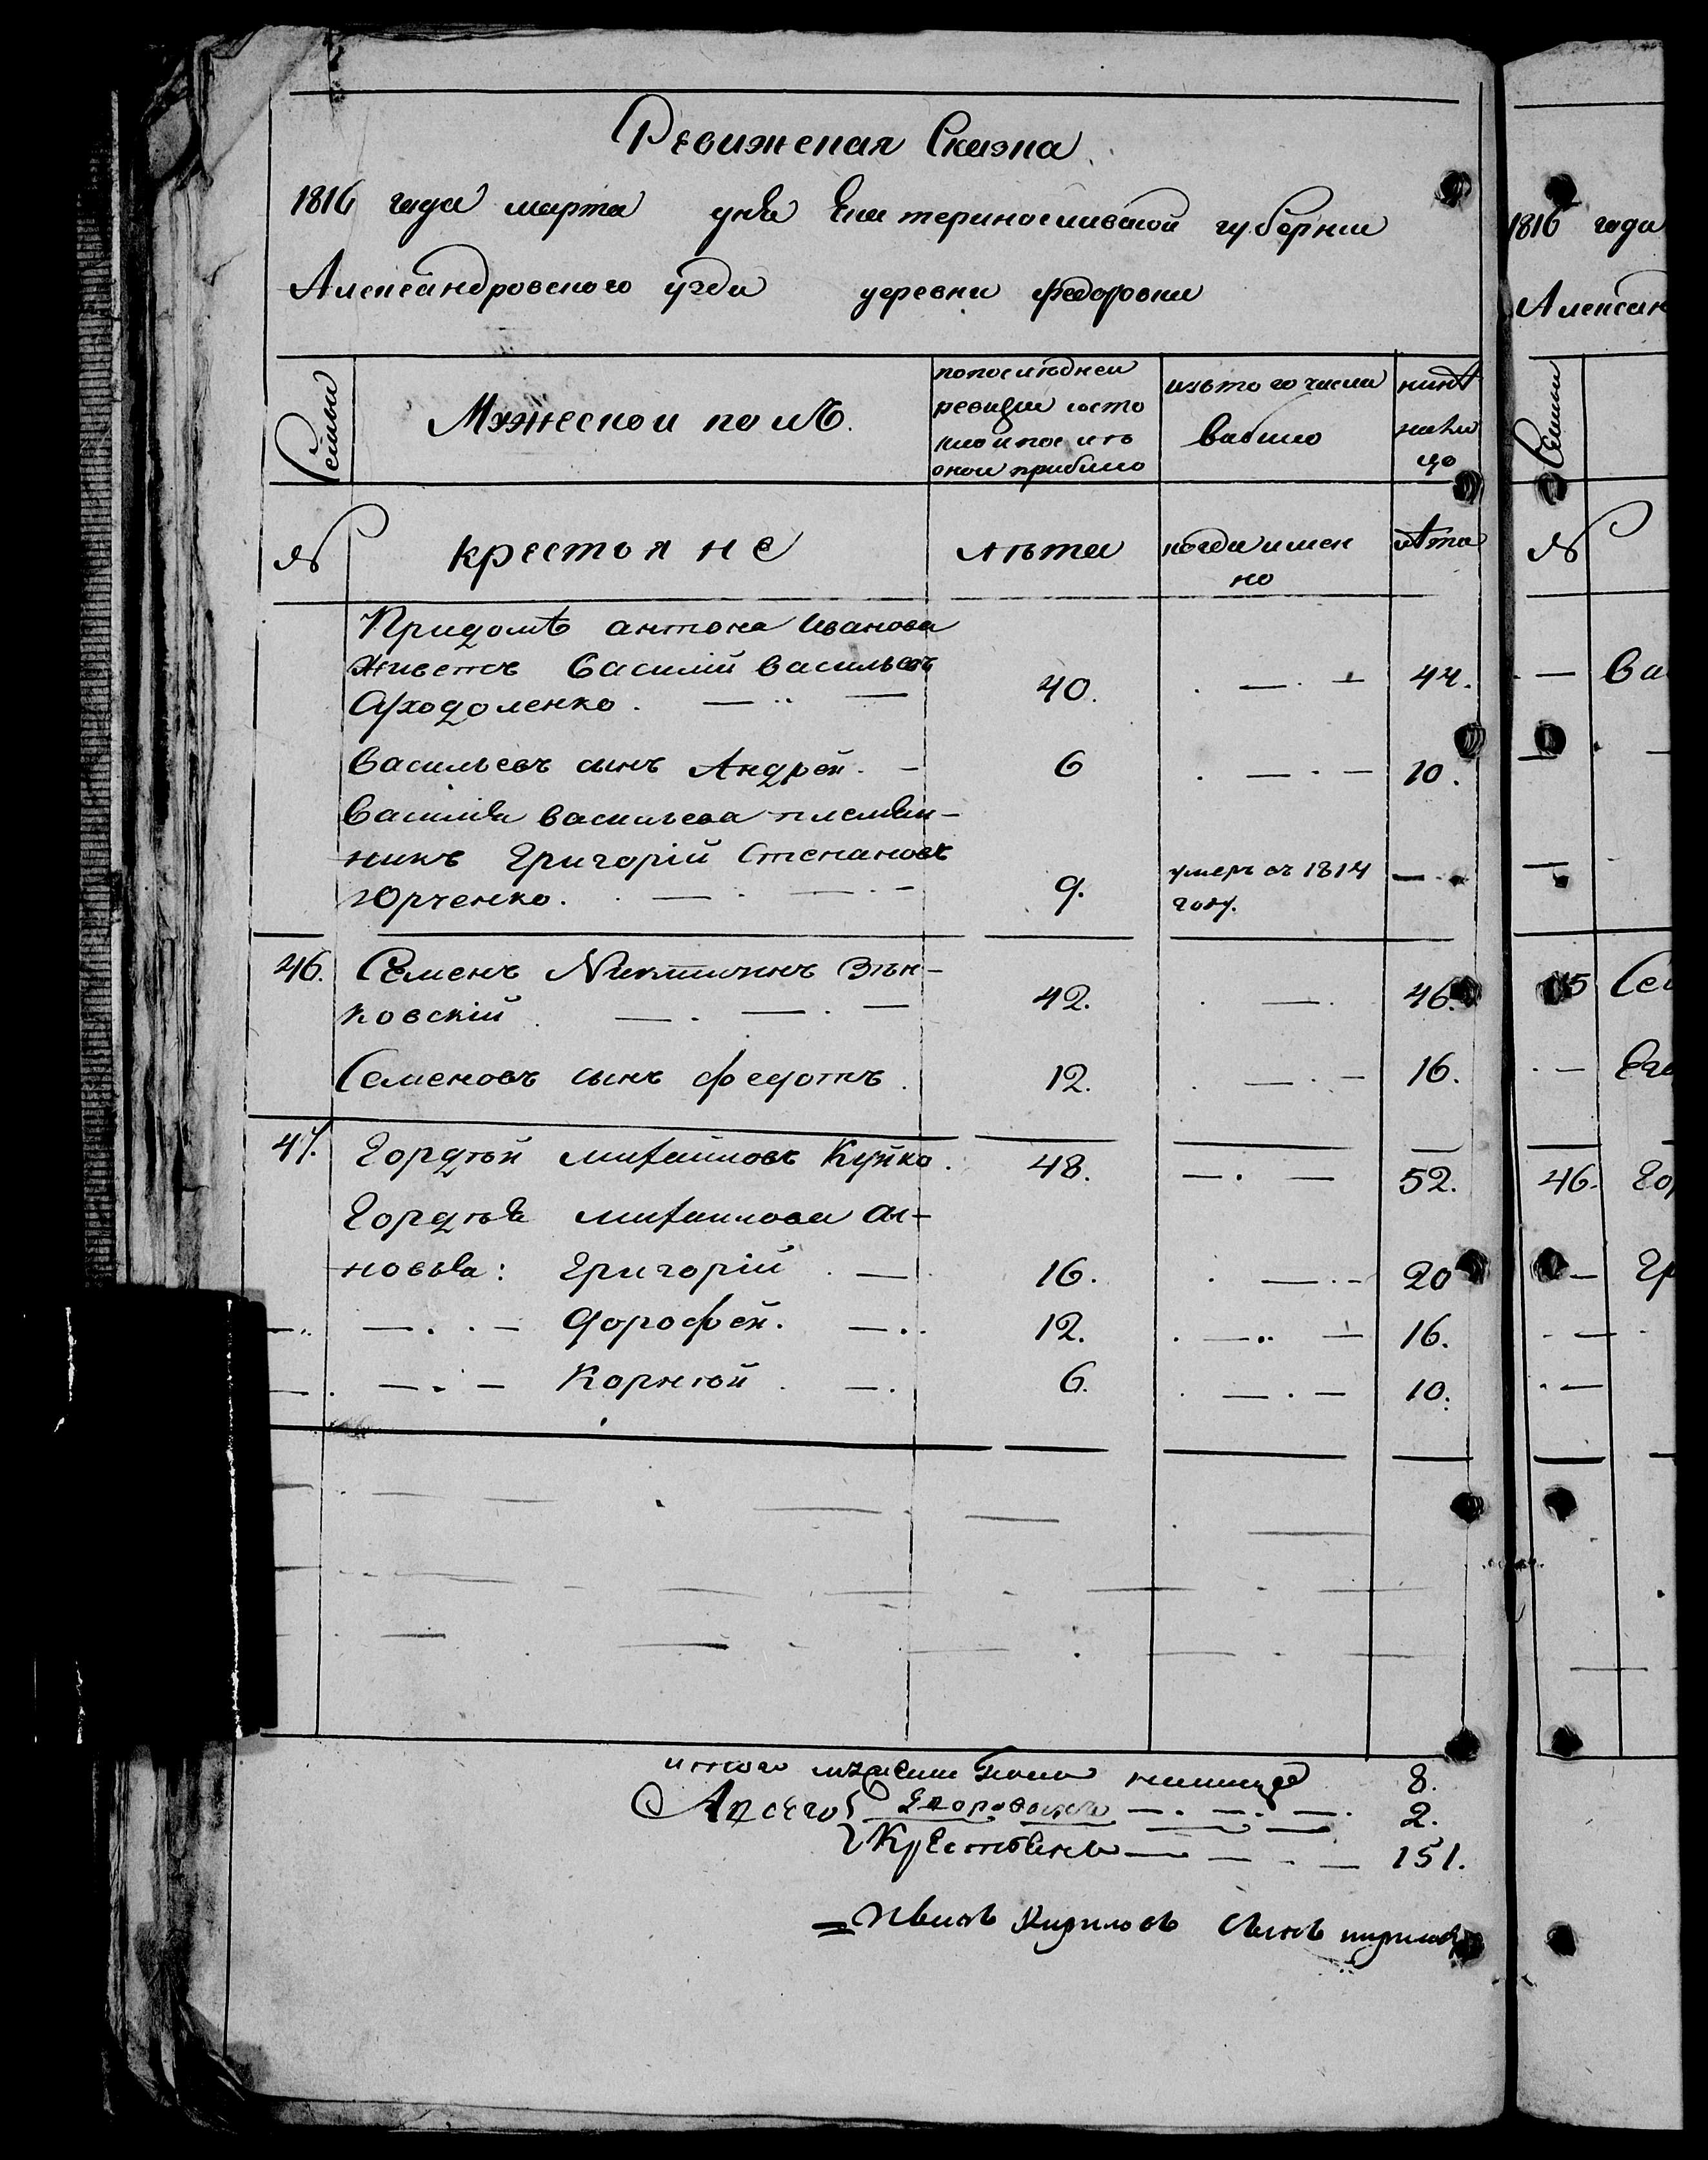 Ревижская Сказка
1816 года марта дня Екатеринославской губернии
Александровского уезда деревни Федоровки
Семьи
Мужескои полъ.
попоследнеи
ревизии состо
яло ипосле
онои прибыло
изъ того числа
выбыло
нинѣ
на ли
цо
№
крестояне
лѣта
когда имен
но
лѣта
Придомѣ антона Иванова
Живетъ Василій васильевъ
Сухоролѣнко.
40.
44.
Васильевъ сынъ Андрей.
6
10.
Василія васильева племян-
никъ Григорій Степановъ
Юрченко.
9.
умеръ въ 1814
году.
46.
Семенъ Никитинъ Зѣн-
ковскій
42.
46.
Семеновъ сынъ федотъ.
12.
16.
47.
Гордѣй михайловъ Куйко.
48.
52.
Гордѣя михайлова сы-
новья: Григорій
16.
20
Дорофей.
12.
16.
Корнѣй
6.
10.
итого мужеска пола налицо 8.
А всего дворовыхъ 2.
Крестьянъ 151.
Иванъ Кириловъ сынъ
1816 года
Алексан
Семьи
№
Ва
45
Сем
Его
46.
Го
Гр